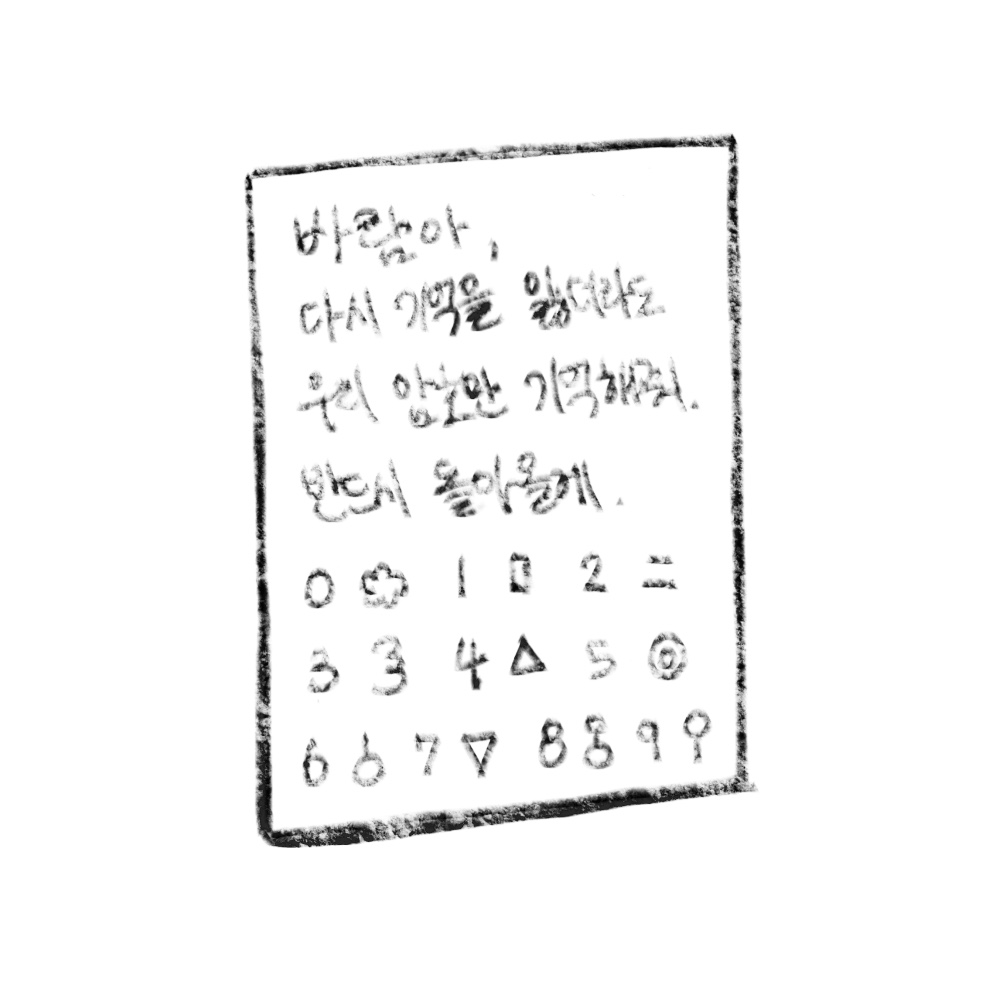 바람아,
다시 기억을 잃더라도
우리 암호만 기억해줘.
반드시 돌아올게.
0 1 2
3 4 5
6 7 8 9